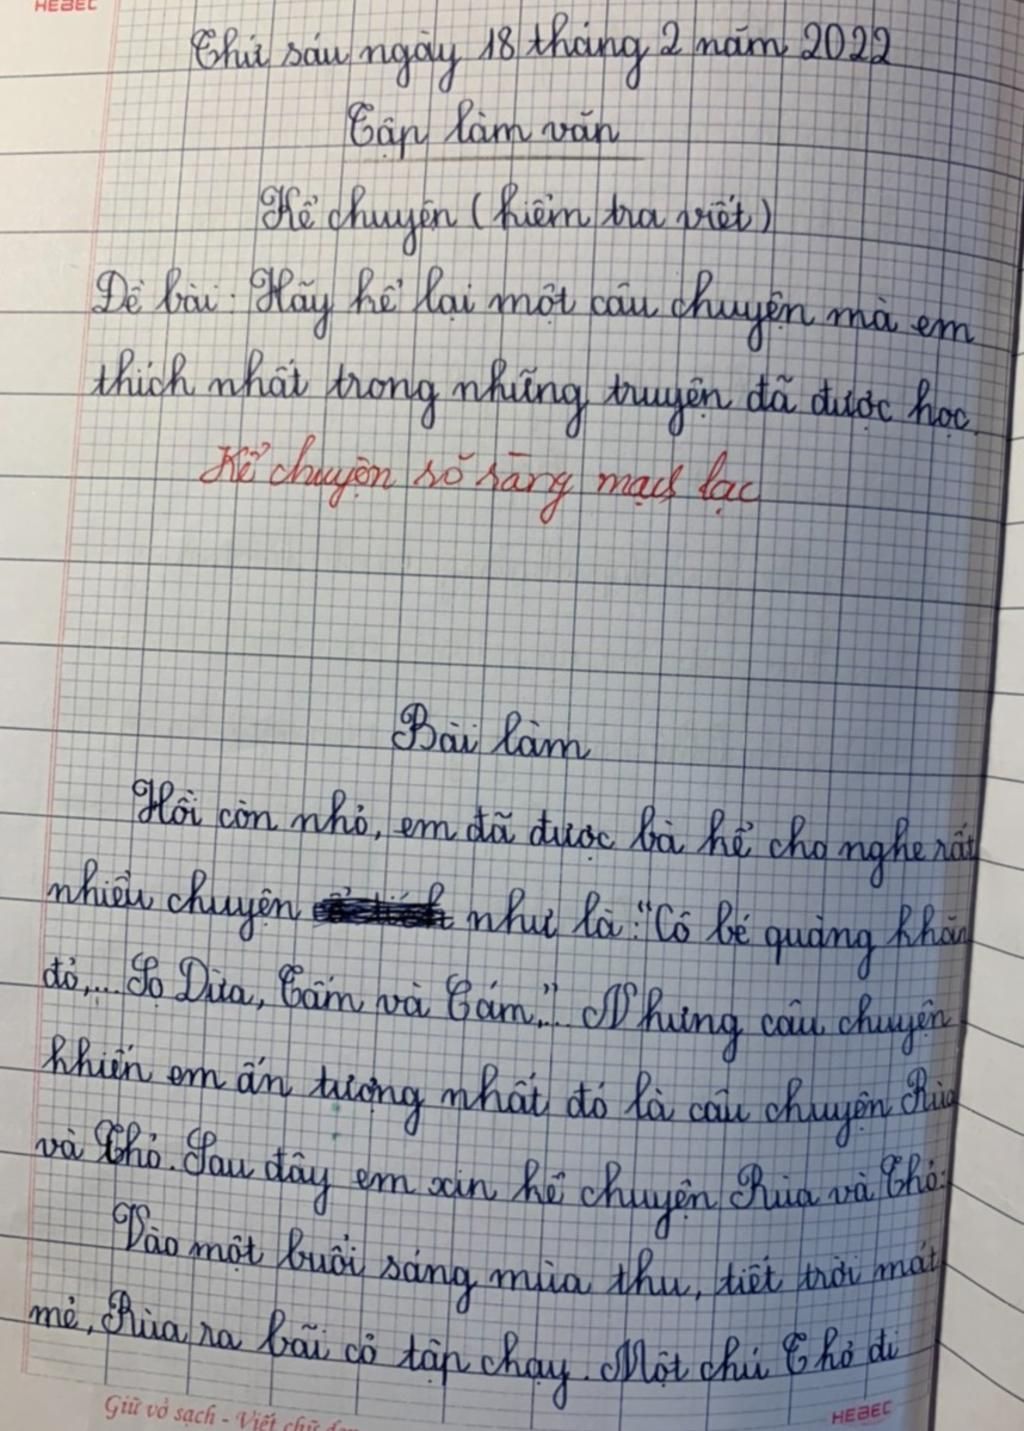 HEBEC
Thứ sáu ngày 18 tháng 2 năm 2022
Tập làm văn
Kể chuyện (kiểm tra viết)
Đề bài: Hãy kể lại một câu chuyện mà em
thích nhất trong những truyện đã được học.
Kể chuyện rõ ràng mạch lạc
Bài làm
Hồi còn nhỏ, em đã được bà kể cho nghe rất
nhiều chuyện như là: "Cô bé quàng khăn
đỏ,... Sọ Dừa, Tấm và Cám,..." Nhưng câu chuyện
khiến em ấn tượng nhất đó là câu chuyện Rùa
và Thỏ. Sau đây em xin kể chuyện Rùa và Thỏ:
Vào một buổi sáng mùa thu, tiết trời mát
mẻ, Rùa ra bãi cỏ tập chạy. Một chú Thỏ đi
Giữ vở sạch - Viết chữ
HEBEC